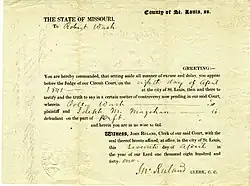 County of St. Louis, ss.
THE STATE OF MISSOURI,
To Robert Wash
GREETING—
You are hereby commanded, that setting aside all manner of excuse and delay, you appear
before the Judge of our Circuit Court, on the eighth day of April
1841 at the city of St. Louis, then and there to
testify and the truth to say in a certain matter of controversy now pending in our said Court,
wherein Polly Wash is
plaintiff and is
defendant on the part of
and herein you are in no wise to fail.
Witness, JOHN RULAND, Clerk of our said Court, with the
seal thereof hereto affixed, at office, in the city of St. Louis,
this day of April in the
year of our Lord one thousand eight hundred and
Jno Ruland CLERK, C. C.